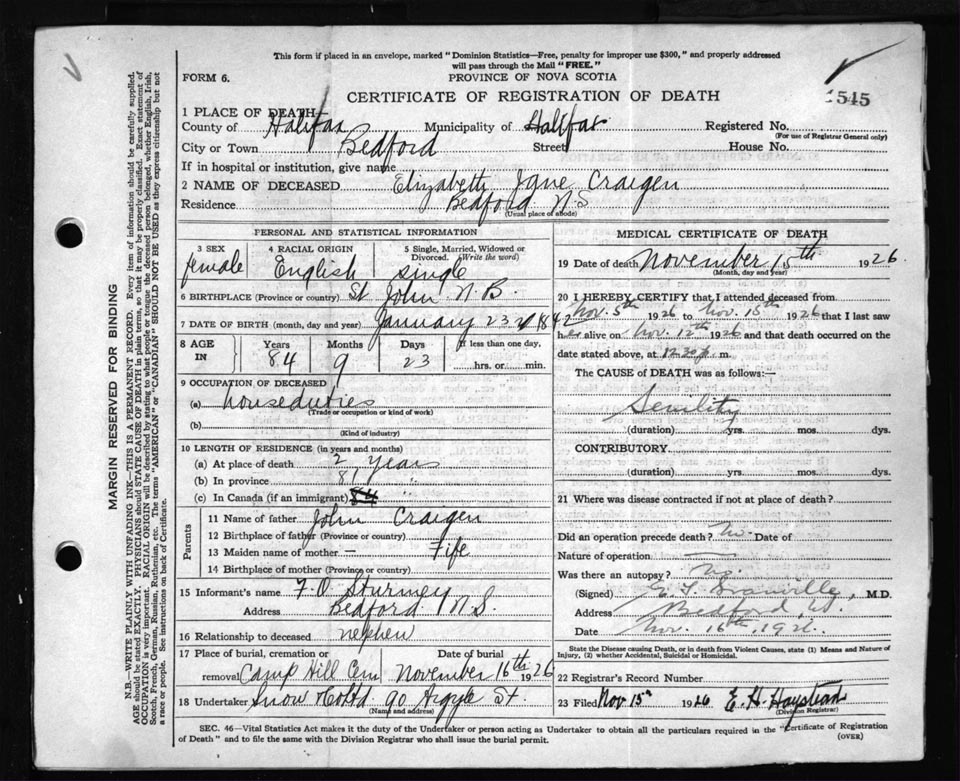 This form if placed in an envelope, marked "Dominion Statistics—Free, penalty for improper use $300," and properly addressed
will pass through the Mail "FREE."
FORM 6.
PROVINCE OF NOVA SCOTIA
CERTIFICATE OF REGISTRATION OF DEATH
545
1 PLACE OF DEATH
County of Halifax Municipality of Halifax Registered No.
(For use of Registrar General only)
City or Town Bedford Street House No.
If in hospital or institution, give name
2 NAME OF DECEASED Elizabeth Jane Craigen
Residence Bedford N.S
(Usual place of abode)
PERSONAL AND STATISTICAL INFORMATION
3 SEX 4 RACIAL ORIGIN 5 Single, Married, Widowed or Divorced. (Write the word)
female English single
6 BIRTHPLACE (Province or country) St John N B.
7 DATE OF BIRTH (month, day and year) January 23 1842
8 AGE IN Years Months Days If less than one day,
84 9 23 hrs. or min.
9 OCCUPATION OF DECEASED
(a) houseduties
(Trade or occupation or kind of work)
(b)
(Kind of industry)
10 LENGTH OF RESIDENCE (in years and months)
(a) At place of death 2 years
(b) In province 8 "
(c) In Canada (if an immigrant) 84
Parents
11 Name of father John Craigen
12 Birthplace of father (Province or country)
13 Maiden name of mother — Fife
14 Birthplace of mother (Province or country)
15 Informant's name F. O Sturmey
Address Bedford N.S.
16 Relationship to deceased nephew
17 Place of burial, cremation or removal Date of burial
Camp Hill Cem November 16th 1926
18 Undertaker Snow & Co Ltd 90 Argyle St.
(Name and address)
MEDICAL CERTIFICATE OF DEATH
19 Date of death November 15th 1926.
(Month, day and year)
20 I HEREBY CERTIFY that I attended deceased from
Nov. 5th 1926 to Nov. 15th 1926 that I last saw
her alive on Nov. 12th 1926 and that death occurred on the
date stated above, at 12.30 p. m.
The CAUSE of DEATH was as follows:—
Senility
(duration) yrs. mos. dys.
CONTRIBUTORY
(duration) yrs. mos. dys.
21 Where was disease contracted if not at place of death?
Did an operation precede death? No. Date of
Nature of operation
Was there an autopsy? No.
(Signed) M.D.
Address Bedford
Date Nov. 16th, 1926.
State the Disease causing Death, or in death from Violent Causes, state (1) Means and Nature of
Injury, (2) whether Accidental, Suicidal or Homicidal.
22 Registrar's Record Number
23 Filed Nov 15th 1926 E. H.
(Division Registrar)
SEC. 46—Vital Statistics Act makes it the duty of the Undertaker or person acting as Undertaker to obtain all the particulars required in the "Certificate of Registration
of Death" and to file the same with the Division Registrar who shall issue the burial permit.
(OVER)
MARGIN RESERVED FOR BINDING
N.B.—WRITE PLAINLY WITH UNFADING INK—THIS IS A PERMANENT RECORD. Every item of information should be carefully supplied.
AGE should be stated EXACTLY. PHYSICIANS should STATE CAUSE OF DEATH in plain terms, so that it may be properly classified. Exact statement of
OCCUPATION is very important. RACIAL ORIGIN will be described by stating to what people or tongue the deceased person belonged, whether English, Irish,
Scotch, French, German, Russian, Ruthenian, etc. The terms "AMERICAN" or "CANADIAN" SHOULD NOT BE USED as they express citizenship but not
a race or people. See instructions on back of Certificate.